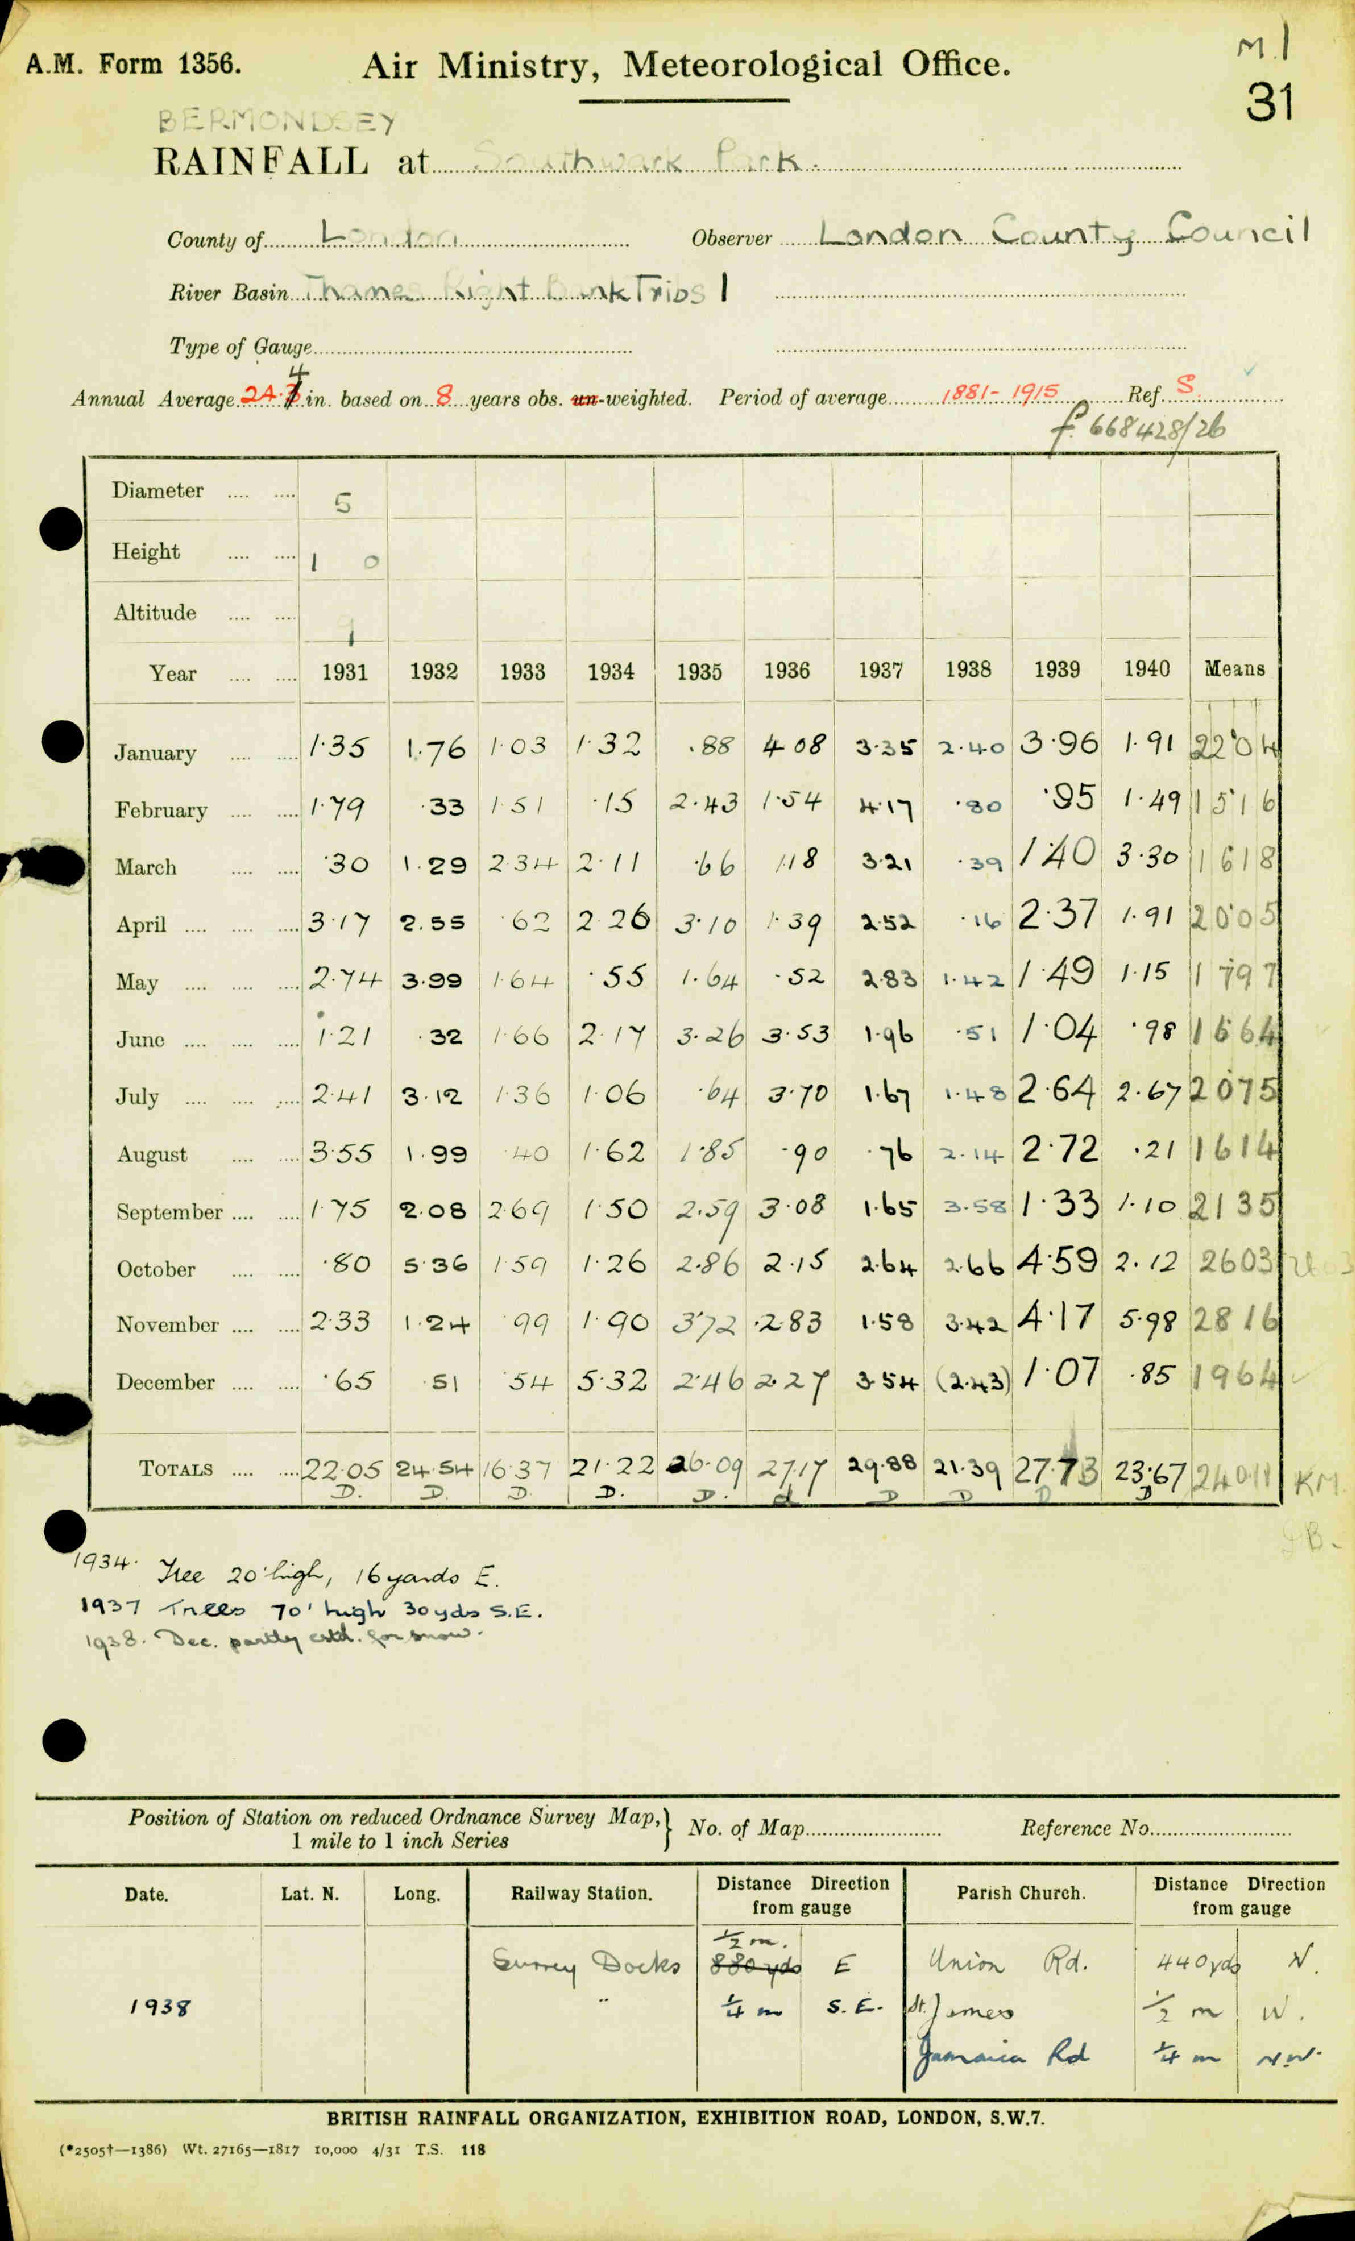 A.M. Form 1356. Air Ministry, Meteorological Office. M.1
31
BERMONDSEY
RAINFALL at Southwark Park.
County of London Observer London County Council
River Basin Thames Right Bank Tribs 1
Type of Gauge
4
Annual Average 24.3 in. based on 8 years obs. un-weighted. Period of average 1881-1915 Ref. S.
f. 668428/26
Diameter 5
Height 1 0
Altitude 9
Year 1931 1932 1933 1934 1935 1936 1937 1938 1939 1940 Means
January 1.35 1.76 1.03 1.32 .88 4.08 3.35 2.40 3.96 1.91 22.04
February 1.79 .33 1.51 .15 2.43 1.54 4.17 .80 .95 1.49 15.16
March .30 1.29 2.34 2.11 .66 1.18 3.21 .39 1.40 3.30 1618
April 3.17 2.55 .62 2.26 3.10 1.39 2.52 .16 2.37 1.91 20.05
May 2.74 3.99 1.64 .55 1.64 .52 2.83 1.42 1.49 1.15 1797
June 1.21 .32 1.66 2.17 3.26 3.53 1.96 .51 1.04 .98 1664
July 2.41 3.12 1.36 1.06 .64 3.70 1.67 1.48 2.64 2.67 2075
August 3.55 1.99 .40 1.62 1.85 .90 .76 2.14 2.72 .21 1614
September 1.75 2.08 2.69 1.50 2.59 3.08 1.65 3.58 1.33 1.10 2135
October .80 5.36 1.59 1.26 2.86 2.15 2.64 2.66 4.59 2.12 2603
November 2.33 1.24 .99 1.90 3.72 2.83 1.58 3.42 4.17 5.98 2816
December .65 .51 .54 5.32 2.46 2.27 3.54 (2.43) 1.07 .85 1964
TOTALS 22.05 24.54 16.37 21.22 26.09 27.17 29.88 21.39 27.73 23.67 24011 KM.
D. D. D. D. D. d D D D D
1934. Tree 20' high, 16 yards E.
1937 Trees 70' high 30 yds S.E.
1938. Dec. partly estd. for snow.
Position of Station on reduced Ordnance Survey Map, 1 mile to 1 inch Series } No. of Map Reference No.
Date. Lat. N. Long. Railway Station. Distance Direction from gauge Parish Church. Distance Direction from gauge
½ m.
Surrey Docks 880 yds E Union Rd. 440 yds N.
1938 " ¼ m S.E. St. James ½ m W.
Jamaica Rd ¼ m N.W.
BRITISH RAINFALL ORGANIZATION, EXHIBITION ROAD, LONDON, S.W.7.
(*2505†—1386) Wt. 27165—1817 10,000 4/31 T.S. 118